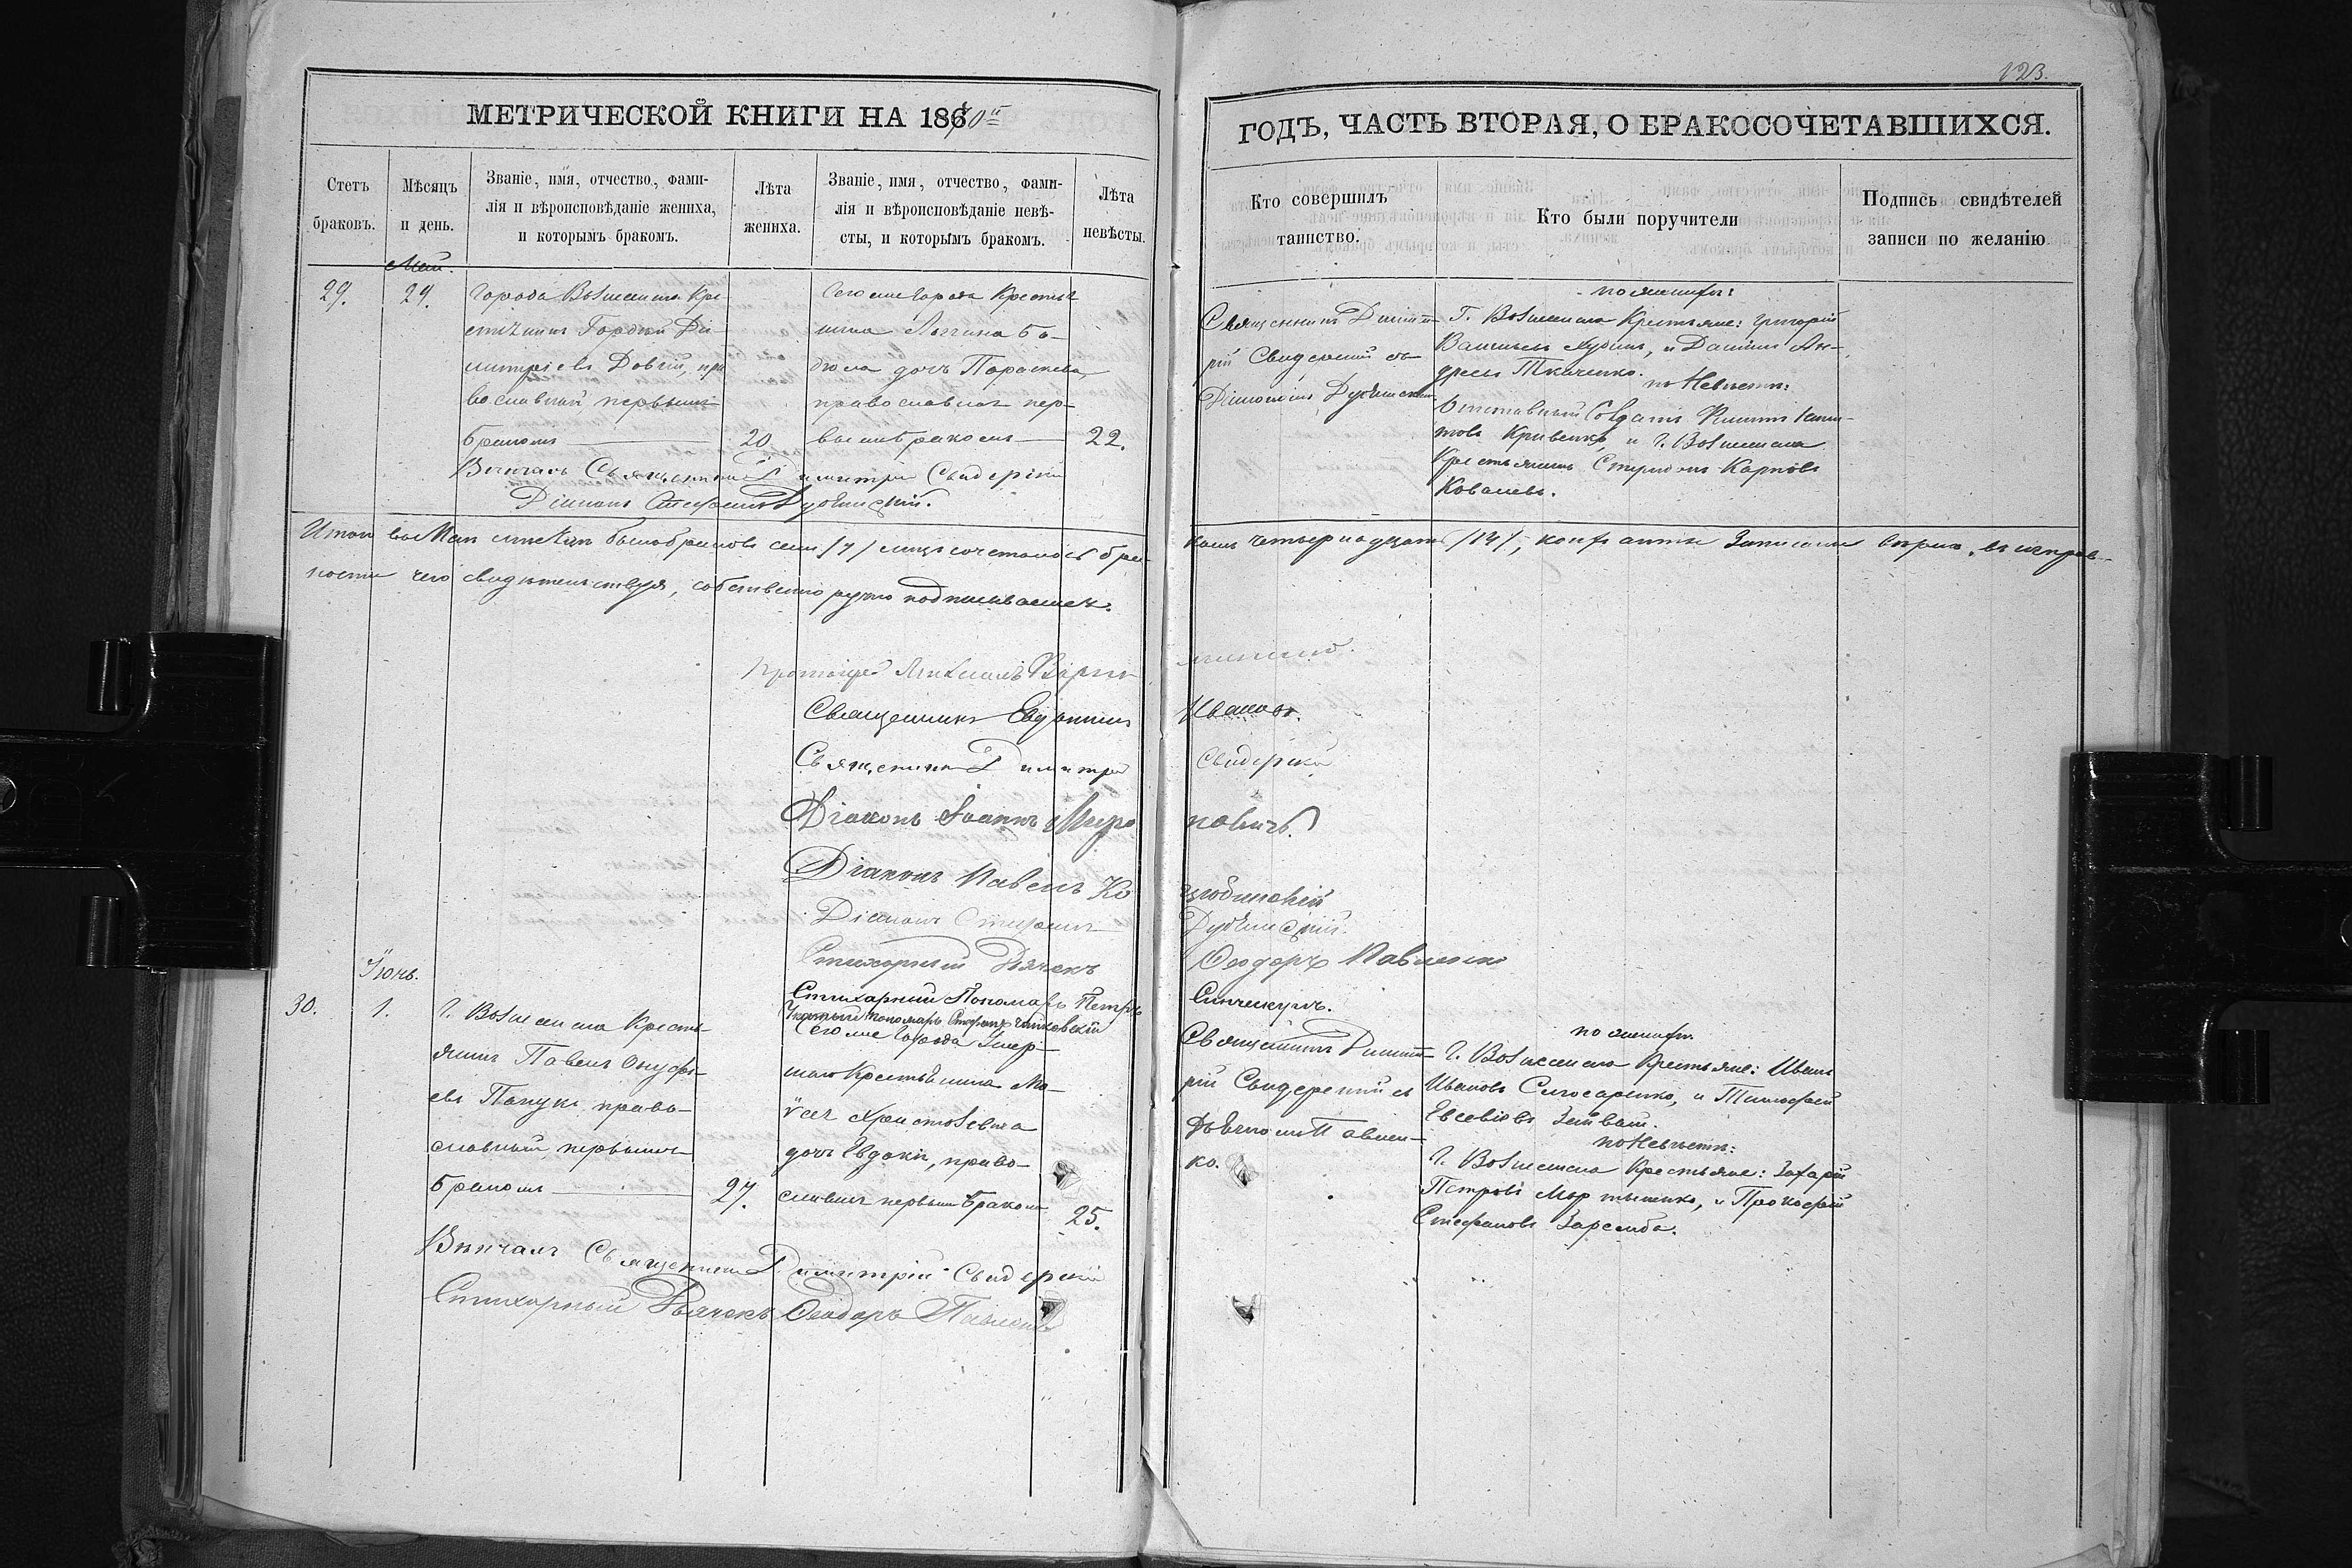 123.
МЕТРИЧЕСКОЙ КНИГИ НА 1870й
ГОДЪ, ЧАСТЬ ВТОРАЯ, О БРАКОСОЧЕТАВШИХСЯ.
Счетъ
браковъ.
Мѣсяцъ
и день.
Званіе, имя, отчество, фами-
лія и вѣроисповѣданіе жениха,
и которымъ бракомъ.
Лѣта
жениха.
Званіе, имя, отчество, фами-
лія и вѣроисповѣданіе невѣ-
сты, и которымъ бракомъ.
Лѣта
невѣсты.
Кто совершилъ
таинство.
Кто были поручители
Подпись свидѣтелей
записи по желанію.
Май.
29.
24.
Города Вознесенска Кре-
стянинъ Гордѣй Ди-
митріевъ Довгій, пра
вославный первымъ
бракомъ
20.
Сего же Города Крестья
нина Логгина Бо-
дюла дочь Параскева,
православная пер-
вымъ бракомъ
22.
Священникъ Димит-
рій Свидерскій съ
Діакономъ Дубинскимъ
по женихѣ:
Г. Вознесенска Крестьяне: Григорій
Васильевъ и Даніилъ Ан-
дреевъ Ткаченко.
по Невѣстѣ:
Отставный Солдатъ
Кривенко, и Г. Вознесенска
Крестьянинъ Спиридонъ Карповъ
Ковалевъ.
Вѣнчалъ Священникъ Димитрій Свидерскій
Діаконъ Стефанъ Дубинскій.
Итого въ Маѣ мѣсяцѣ было браковъ семь /7/ лицъ сочеталось бра-
комъ четырнадцать /14/, кои записаны вѣрно, въ исправ-
ности чего свидѣтельствуя, собственноручно подписываемся.
Протоіерей Михаилъ
Священникъ Евдокимъ Ивановъ.
Священникъ Димитрій Свидерскій
Діаконъ Іоаннъ Мироновичъ.
Діаконъ Павелъ Коцюбинскій
Діаконъ Стефанъ Дубинскій.
Стихарный Дьячекъ Ѳеодоръ Павленко
Стихарный Пономарь Петръ Синчекулъ.
пономарь Стефанъ Чайковскій
Іюнь.
30.
1.
Г. Вознесенска Кресть-
янинъ Павелъ Онуфрі-
евъ Папукъ, право-
славный, первымъ
бракомъ
27.
Сего же Города Умер-
шаго Крестьянина Мо-
ѵсея Христозевича
дочь Евдокія, право-
славная первымъ бракомъ
25.
Священникъ Димит-
рій Свидерскій съ
Дьячкомъ Павлен-
ко.
по женихѣ.
Г. Вознесенска Крестьяне: Иванъ
Ивановъ Слюсаренко, и Тимофей
Евсевіевъ
по Невѣстѣ:
Г. Вознесенска Крестьяне: Захарій
Петровъ Мартыненко, и Прокофій
Стефановъ Заремба.
Вѣнчалъ Священникъ Димитрій Свидерскій
Стихарный Дьячекъ Ѳеодоръ Павленко